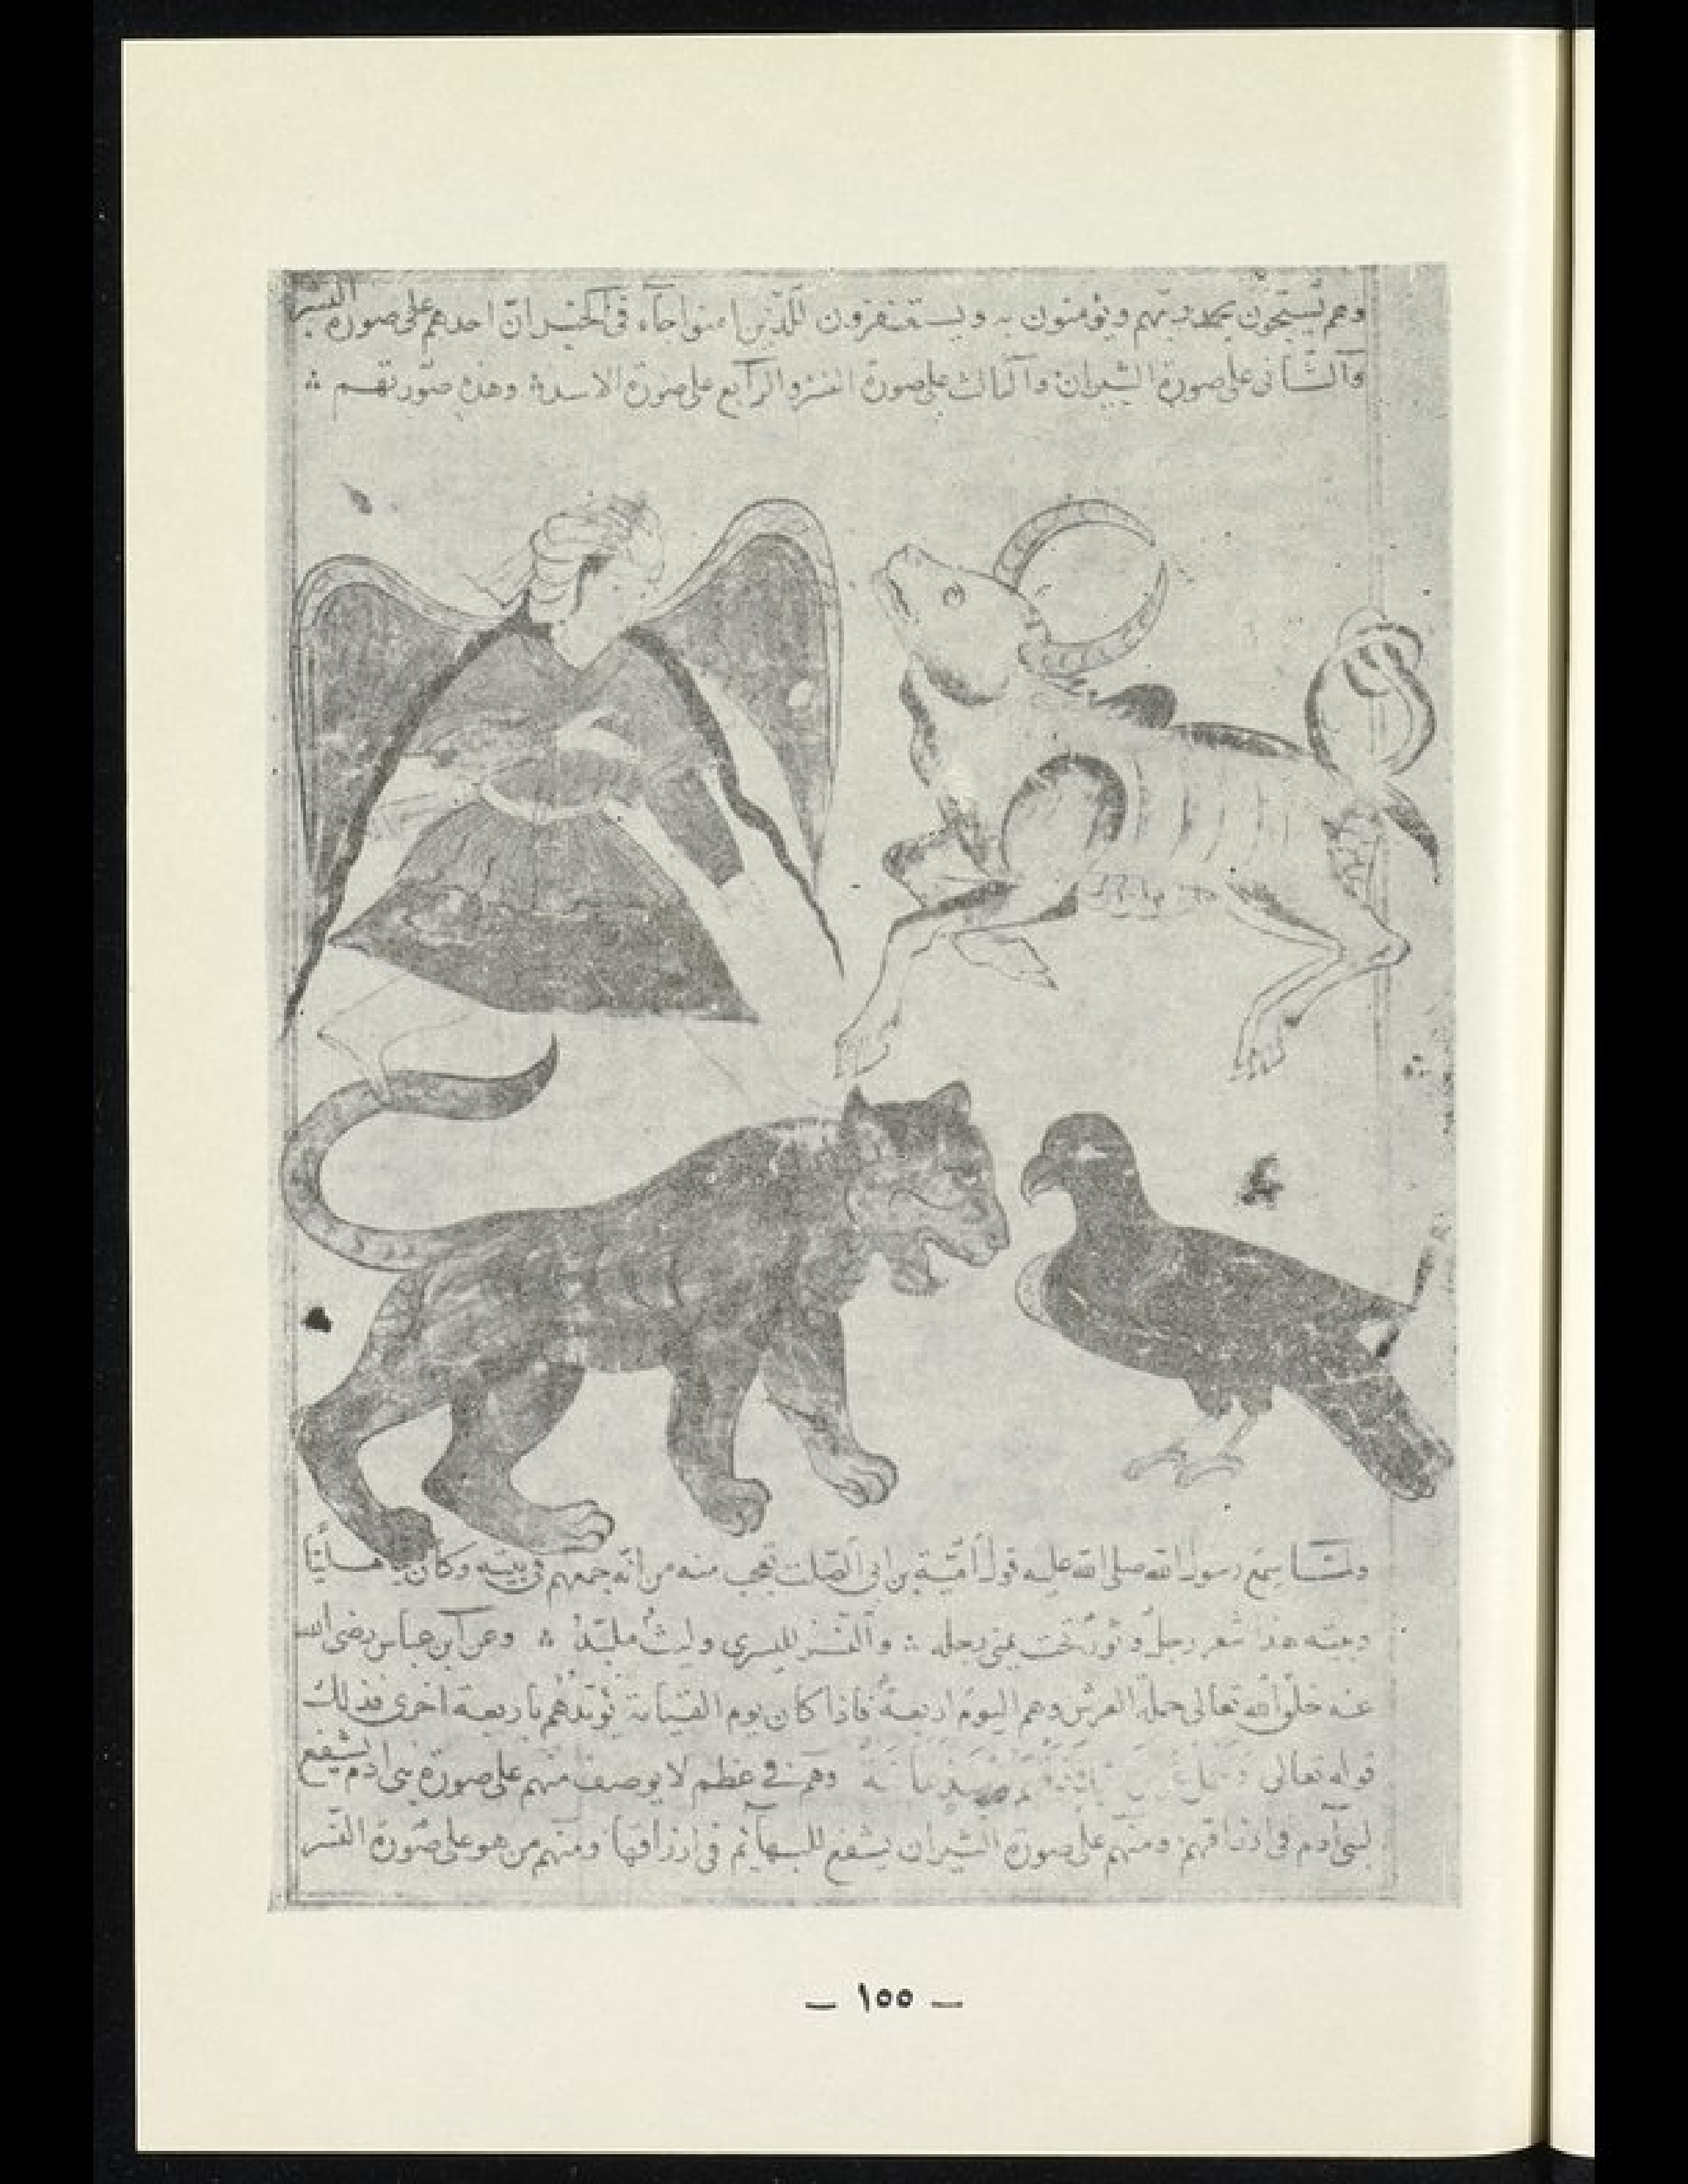 وهم يسبّحون بحمد ربّهم ويؤمنون به ويستغفرون للّذين امنوا جآء فى الخبر انّ احدهم على صورة البشر
والثّانى على صورة الثيران والثالث على صورة النسر والرابع على صورة الاسد وهذه صورتهم
ولمّا سمع رسول الله صلى الله عليه قول اميّة بن ابى الصّلت تعجب منه من انّه جمعهم فى بيته وكان جاهليّا
وبيته هذا شعر رجل وثور تحت يمنى رجله والنسر لليسرى وليث ملبّد وعن ابن عباس رضى الله
عنه خلق الله تعالى حملة العرش وهم اليوم اربعة فاذا كان يوم القيامة يؤيّدهم باربعة اخرى فذلك
قوله تعالى وهم فى عظم لا يوصف منهم على صورة بنى ادم يشفع
لبنى آدم فى ارزاقهم ومنهم على صورة الثيران يشفع للبهائم فى ارزاقها ومنهم من هو على صورة النسر
— ١٥٥ —